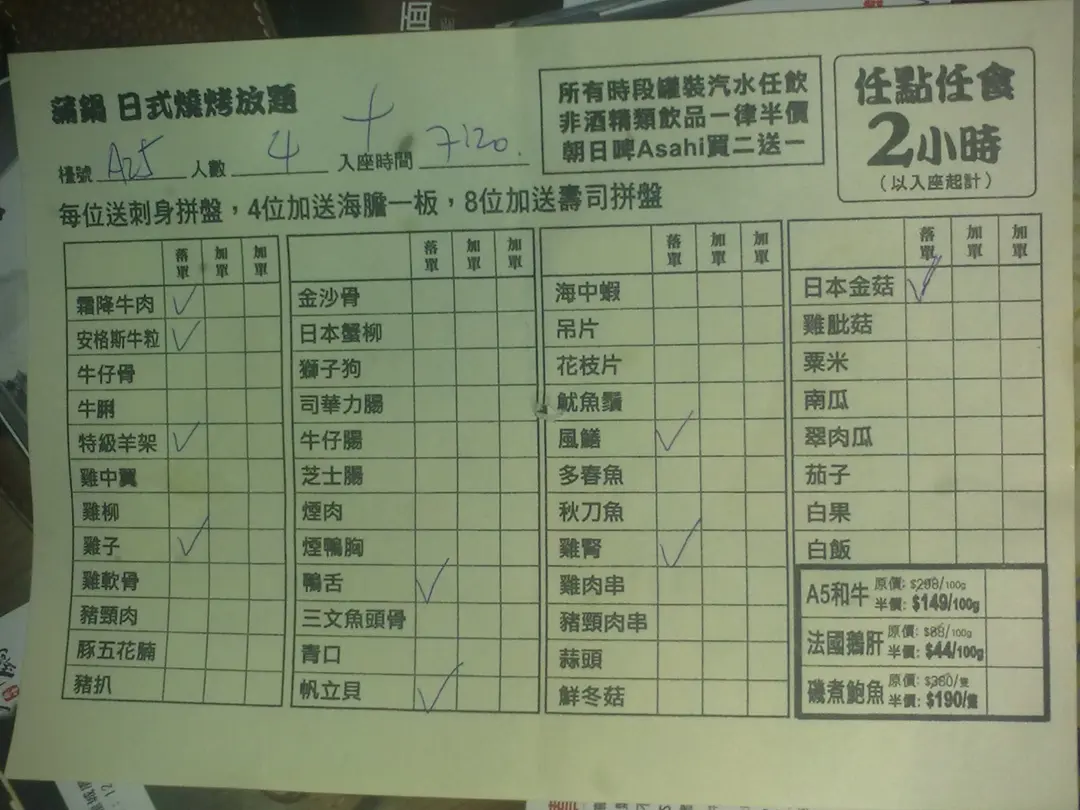 蒲鍋 日式燒烤放題
檯號 A25 人數 4 入座時間 7:20.
所有時段罐裝汽水任飲
非酒精類飲品一律半價
朝日啤Asahi買二送一
任點任食
2小時
(以入座起計)
每位送刺身拼盤，4位加送海膽一板，8位加送壽司拼盤
落單 加單 加單
霜降牛肉 ✓
安格斯牛粒 ✓
牛仔骨
牛脷
特級羊架 ✓
雞中翼
雞柳
雞子 ✓
雞軟骨
豬頸肉
豚五花腩
豬扒
落單 加單 加單
金沙骨
日本蟹柳
獅子狗
司華力腸
牛仔腸
芝士腸
煙肉
煙鴨胸
鴨舌 ✓
三文魚頭骨
青口
帆立貝 ✓
落單 加單 加單
海中蝦
吊片
花枝片
魷魚鬚
風鱔 ✓
多春魚
秋刀魚
雞腎 ✓
雞肉串
豬頸肉串
蒜頭
鮮冬菇
落單 加單 加單
日本金菇 ✓
雞肶菇
粟米
南瓜
翠肉瓜
茄子
白果
白飯
A5和牛 原價: $298/100g
半價: $149/100g
法國鵝肝 原價: $88/100g
半價: $44/100g
磯煮鮑魚 原價: $380/隻
半價: $190/隻